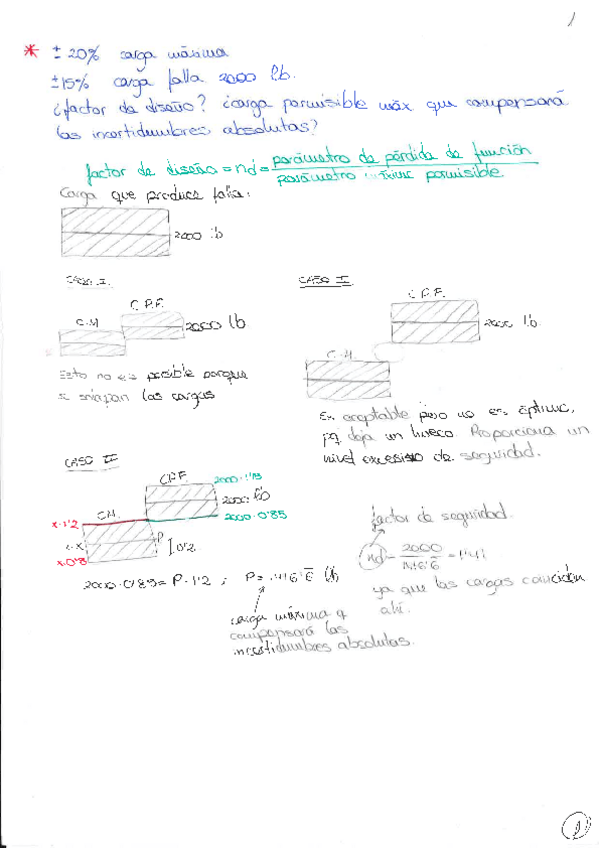 1
* ± 20% carga máxima
± 15% carga falla 2000 lb.
¿factor de diseño? ¿carga permisible máx que compensará
las incertidumbres absolutas?
factor de diseño = nd = parámetro de pérdida de función
parámetro permisible
Carga que produce falla:
2000 lb
CASO I.
C.P.F.
C.M
2000 lb
Esto no es posible porque
se solapan las cargas
CASO II
C.P.F.
2000 lb.
C.M.
Es aceptable pero no es óptimo,
pq deja un hueco. Proporciona un
nivel excesivo de seguridad.
CASO III
C.P.F.
2000·1'15
2000 lb
2000·0'85
C.M.
x·1'2
x·0'8
P
0'2
2000·0'85 = P·1'2 ; P = 1416'6 lb
carga máxima q
compensará las
incertidumbres absolutas.
factor de seguridad.
nd = 2000 = 1'41
1416'6
ya que las cargas coinciden
ahí.
1